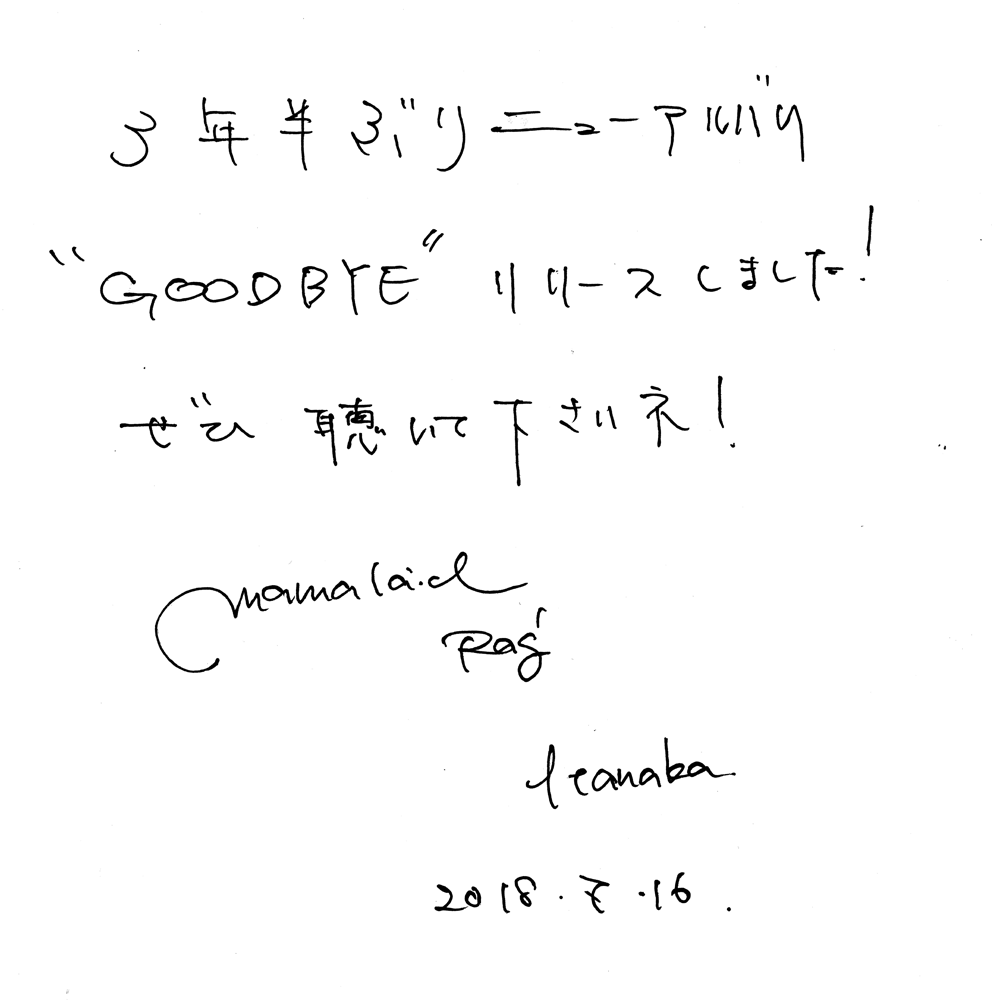 3年半ぶりニューアルバム
"GOODBYE" リリースしました!
ぜひ 聴いて下さいネ!
mamalaid
Rag
tanaka
2018.7.16.